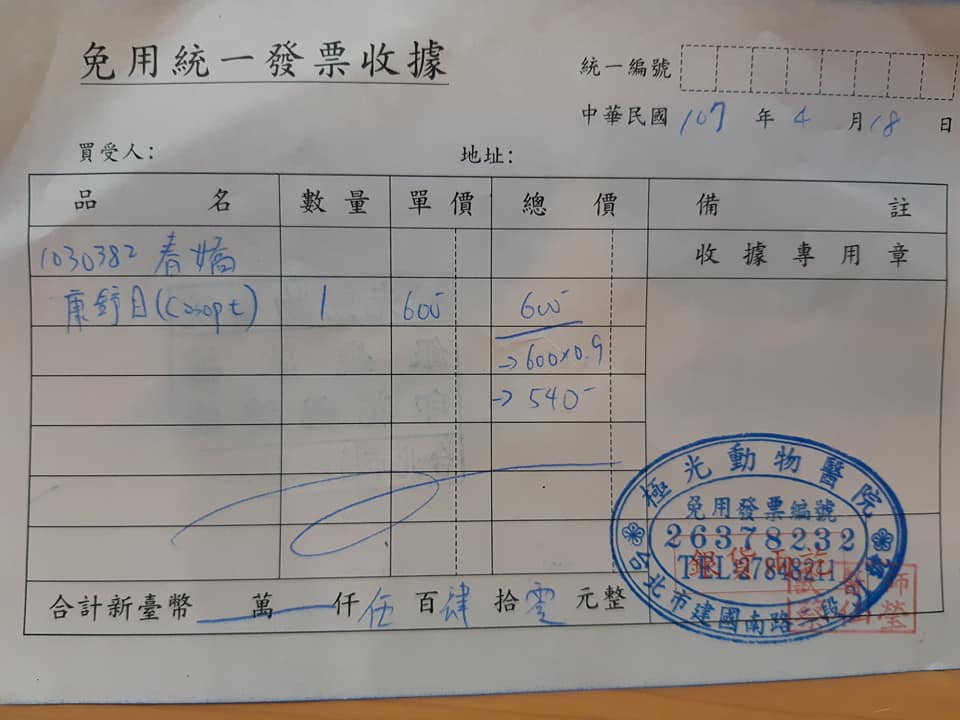 免用統一發票收據
統一編號
中華民國 107 年 4 月 18 日
買受人： 地址：
品名 數量 單價 總價 備註
收據專用章
1030382 春嬌
康舒目(Cosopt) 1 600 600
→600×0.9
→540
極光動物醫院
免用發票編號
26378232
銀貨兩訖
TEL:27848211
台北市建國南路一段
合計新臺幣 萬 仟 伍 百 肆 拾 零 元整